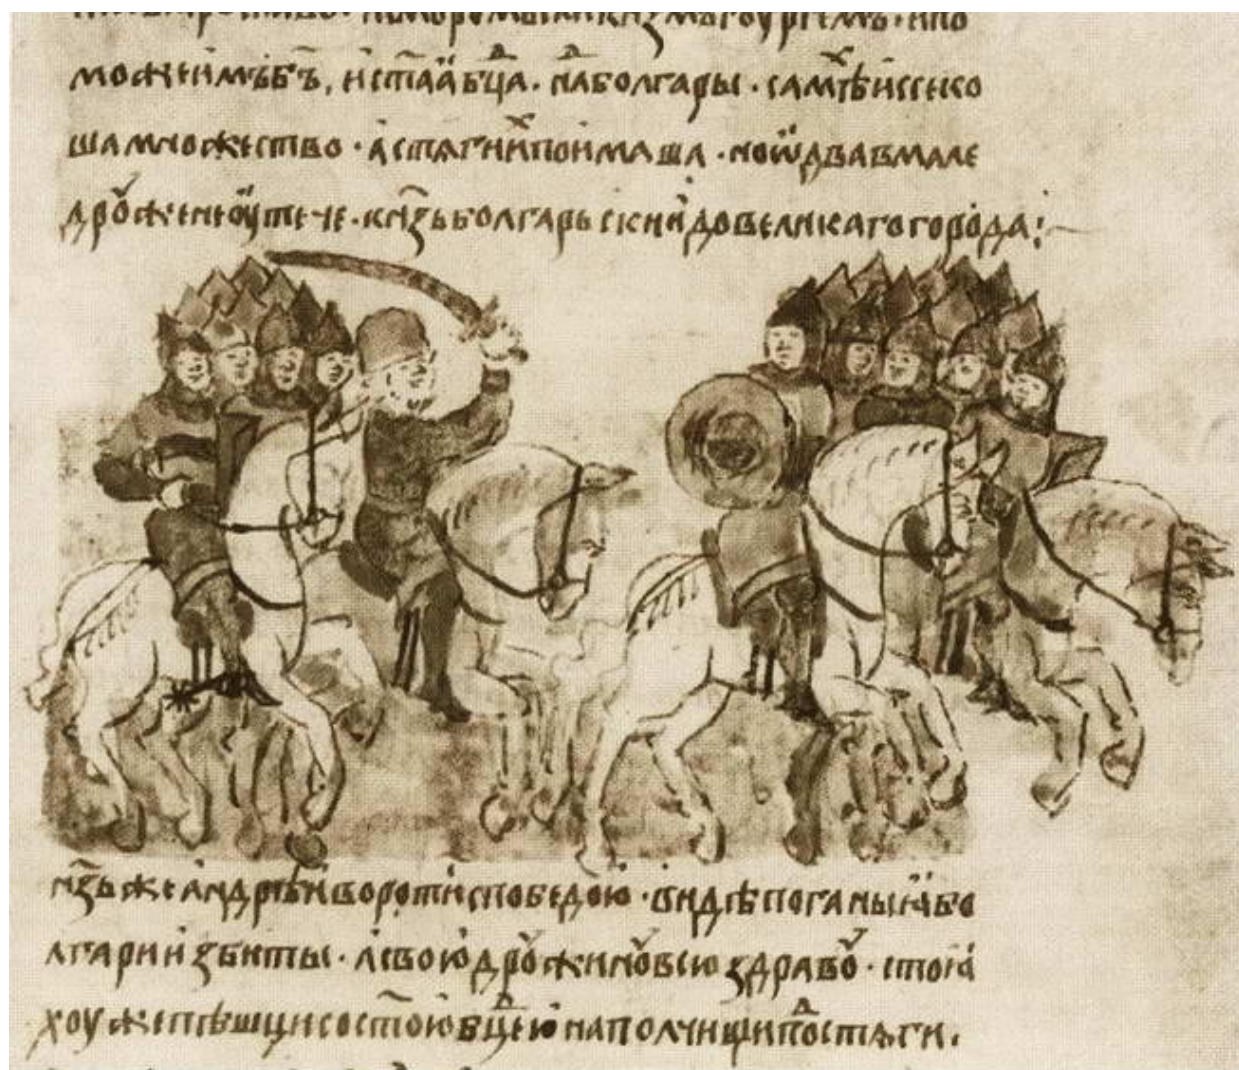 може имъ б҃ъ, и ст҃аꙗ б҃ца · на болгары · самѣхъ исѣко
ша множество · а стягы ихъ поимаша · но ѡдва в мале
дрꙋжине ꙋтече · кн҃зь болгарьскии до великаго города :
н҃зь же андрѣи воротисѧ с победою · видѣ поганыꙗ бо
лгари избиты · а свою дрꙋжинꙋ всю здравꙋ · стоꙗ
хоу же пѣшци со ст҃ою бц҃ею на полчищи под стѧги ·